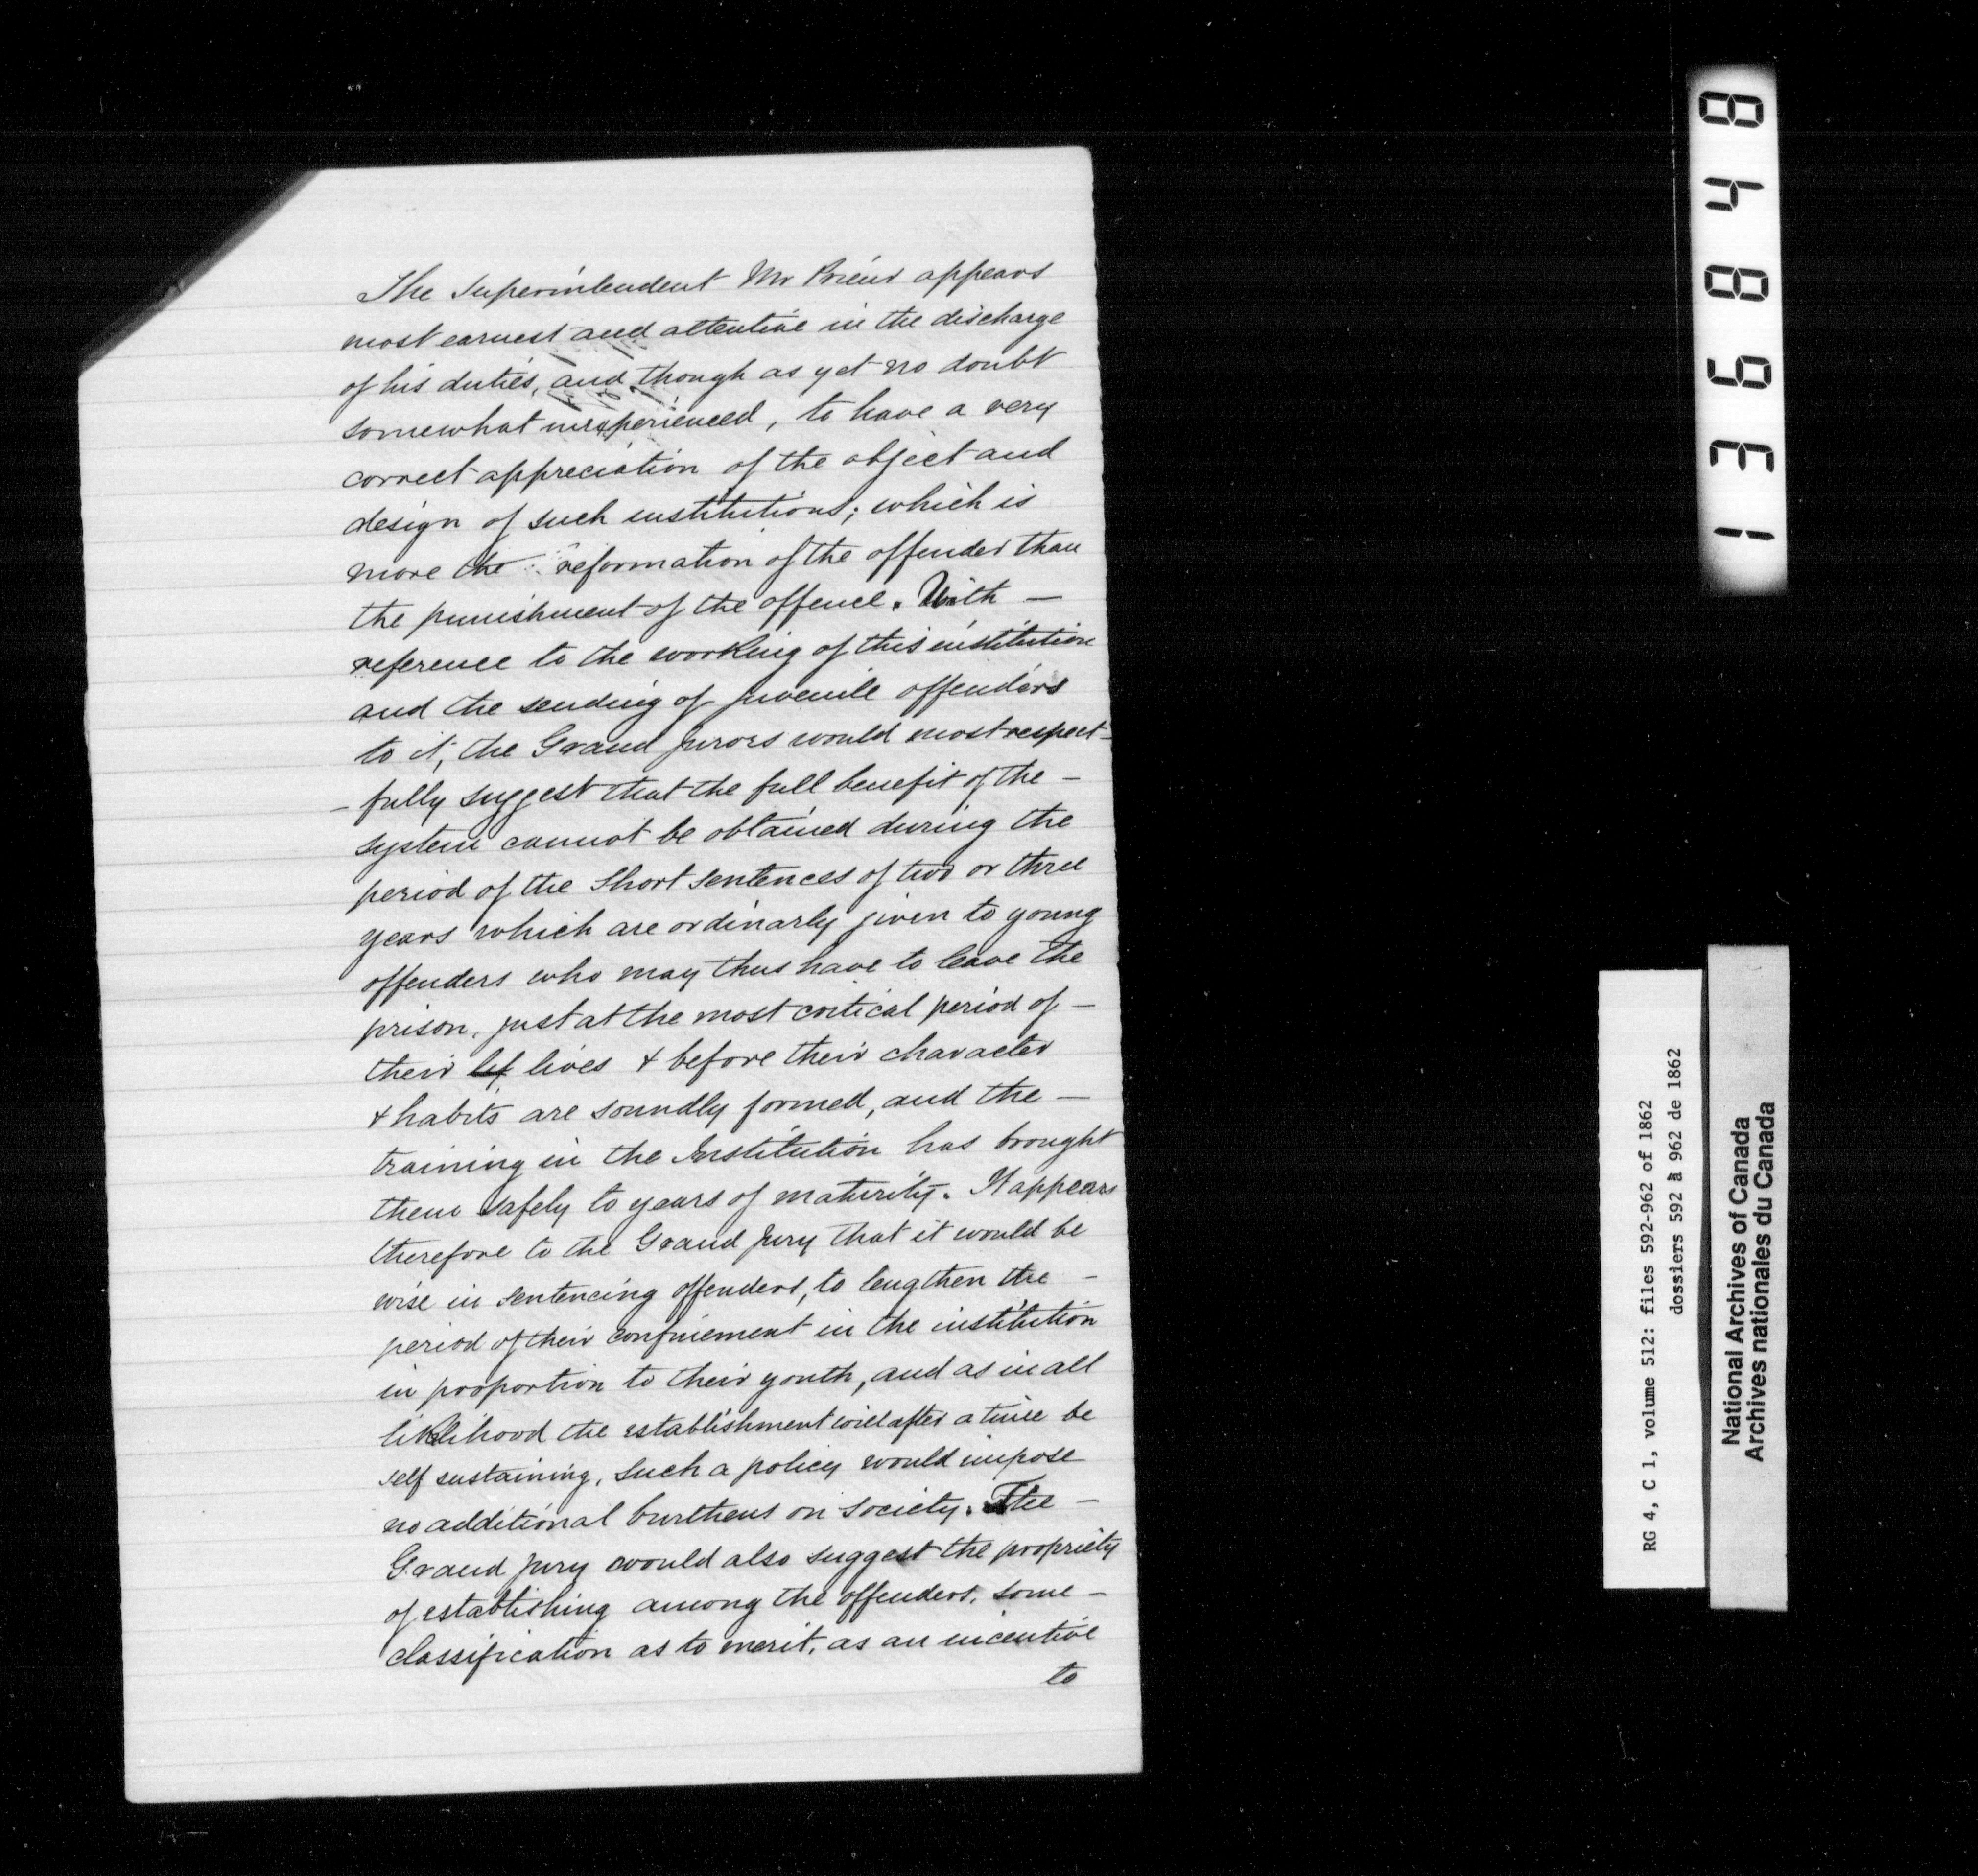 The Superintendent Mr Prieur appears
most earnest and attentive in the discharge
of his duties, and though as yet no doubt
somewhat inexperienced, to have a very
correct appreciation of the object and
design of such institutions; which is
more the reformation of the offender than
the punishment of the offence. With —
reference to the working of this institution
and the sending of juvenile offenders
to it, the Grand jurors would most respect-
- fully suggest that the full benefit of the —
system cannot be obtained during the
period of the short sentences of two or three
years which are ordinarly given to young
offenders who may thus have to leave the
prison, just at the most critical period of —
their lif lives & before their character
& habits are soundly formed, and the —
training in the Institution has brought
them safely to years of maturity. It appears
therefore to the Grand jury that it would be
wise in sentencing offenders, to lengthen the —
period of their confinement in the institution
in proportion to their youth, and as in all
likelihood the establishment will after a time be
self sustaining, such a policy would impose
no additional burthens on society. The —
Grand jury would also suggest the propriety
of establishing among the offenders, some —
classification as to merit, as an incentive
to
136848
RG 4, C 1, volume 512: files 592-962 of 1862
dossiers 592 à 962 de 1862
National Archives of Canada
Archives nationales du Canada